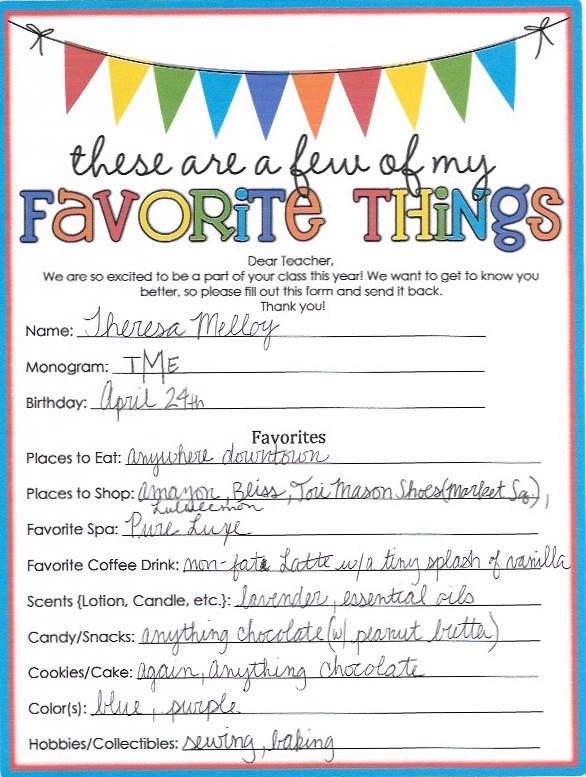 these are a few of my
FAVORITE THINGS
Dear Teacher,
We are so excited to be a part of your class this year! We want to get to know you
better, so please fill out this form and send it back.
Thank you!
Name: Theresa Melloy
Monogram: TME
Birthday: April 24th
Favorites
Places to Eat: anywhere downtown
Places to Shop: amazon, Bliss, Tori Mason Shoes (Market Sq.),
Lululemon
Favorite Spa: Pure Luxe
Favorite Coffee Drink: non-fat Latte w/a tiny splash of vanilla
Scents {Lotion, Candle, etc.}: lavender, essential oils
Candy/Snacks: anything chocolate (w/ peanut butter)
Cookies/Cake: again, anything chocolate
Color(s): blue, purple
Hobbies/Collectibles: sewing, baking